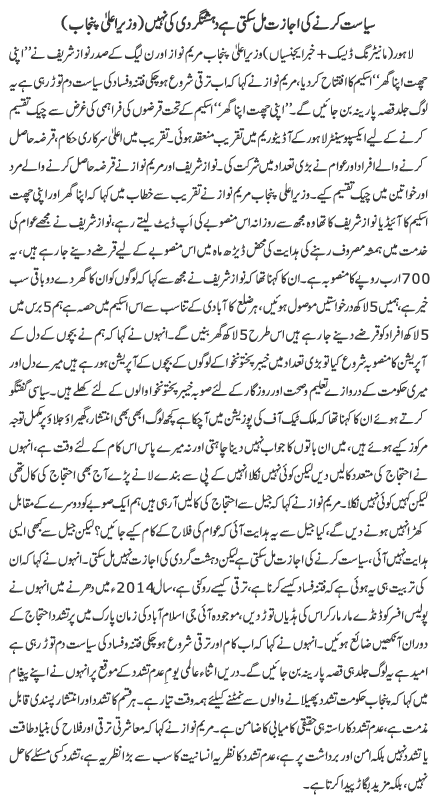 سیاست کرنے کی اجازت مل سکتی ہے دہشتگردی کی نہیں (وزیراعلیٰ پنجاب)
لاہور (مانیٹرنگ ڈیسک + خبر ایجنسیاں) وزیراعلیٰ پنجاب مریم نواز اور ن لیگ کے صدر نواز شریف نے ”اپنی
چھت اپنا گھر“ اسکیم کا افتتاح کردیا، مریم نواز نے کہا کہ اب ترقی شروع ہوچکی فتنہ و فساد کی سیاست دم توڑ رہی ہے یہ
لوگ جلد قصہ پارینہ بن جائیں گے۔ ”اپنی چھت اپنا گھر“ اسکیم کے تحت قرضوں کی فراہمی کی غرض سے چیک تقسیم
کرنے کے لیے ایکسپو سینٹر لاہور کے آڈیٹوریم میں تقریب منعقد ہوئی۔ تقریب میں اعلیٰ سرکاری حکام، قرضہ حاصل
کرنے والے افراد اور عوام نے بڑی تعداد میں شرکت کی۔ نواز شریف اور مریم نواز نے قرضہ حاصل کرنے والے مرد
اور خواتین میں چیک تقسیم کیے۔ وزیراعلیٰ پنجاب مریم نواز نے تقریب سے خطاب میں کہا کہ اپنا گھر اور اپنی چھت
اسکیم کا آئیڈیا نواز شریف کا تھا وہ مجھ سے روزانہ اس منصوبے کی اَپ ڈیٹ لیتے رہے، نواز شریف نے مجھے عوام کی
خدمت میں ہمشہ مصروف رہنے کی ہدایت کی محض ڈیڑھ ماہ میں اس منصوبے کے لیے قرضے دیے جارہے ہیں، یہ
700 ارب روپے کا منصوبہ ہے۔ ان کا کہنا تھا کہ نواز شریف نے مجھ سے کہا کہ لوگوں کو ان کا گھر دے دو باقی سب
خیر ہے، ہمیں 5 لاکھ درخواستیں موصول ہوئیں، ہر ضلع کا آبادی کے تناسب سے اس اسکیم میں حصہ ہے ہم 5 برس میں
5 لاکھ افراد کو قرضے دینے جارہے ہیں اس طرح 5 لاکھ گھر بنیں گے۔ انہوں نے کہا کہ ہم نے بچوں کے دل کے
آپریشن کا منصوبہ شروع کیا تو بڑی تعداد میں خیبر پختونخوا کے لوگوں کے بچوں کے آپریشن ہورہے ہیں میرے دل اور
میری حکومت کے دروازے تعلیم و صحت اور روزگار کے لئے صوبہ خیبر پختونخوا والوں کے لئے کھلے ہیں۔ سیاسی گفتگو
کرتے ہوئے ان کا کہنا تھا کہ ملک ٹیک آف کی پوزیشن میں آچکا ہے کچھ لوگ ابھی بھی انتشار، گھیراؤ جلاؤ پر مکمل توجہ
مرکوز کیے ہوئے ہیں، میں ان باتوں کا جواب نہیں دینا چاہتی اور نہ میرے پاس اس کام کے لئے وقت ہے، انہوں
نے احتجاج کی متعدد کالیں دیں لیکن کوئی نہیں نکلا انہیں کے پی سے بندے لانے پڑے آج بھی احتجاج کی کال تھی
لیکن کوئی نہیں نکلا۔ مریم نواز نے کہا کہ جیل سے احتجاج کی کالیں آرہی ہیں ہم ایک صوبے کو دوسرے کے مقابل
کھڑا نہیں ہونے دیں گے، کیا جیل سے یہ ہدایت آئی کہ عوام کی فلاح کے کام کیے جائیں؟ لیکن جیل سے کبھی ایسی
ہدایت نہیں آئی، سیاست کرنے کی اجازت مل سکتی ہے لیکن دہشت گردی کی اجازت نہیں مل سکتی۔ انہوں نے کہا کہ ان
کی تربیت ہی یہ ہوئی ہے کہ فتنہ فساد کیسے کرنا ہے، ترقی کیسے روکنی ہے، سال 2014ء میں دھرنے میں انہوں نے
پولیس افسر کو ڈنڈے مار مار کر اس کی ہڈیاں توڑ دیں، موجودہ آئی جی اسلام آباد کی زمان پارک میں پرتشدد احتجاج کے
دوران آنکھیں ضائع ہوئیں۔ انہوں نے کہا کہ اب کام اور ترقی شروع ہوچکی فتنہ و فساد کی سیاست دم توڑ رہی ہے
امید ہے یہ لوگ جلد ہی قصہ پارینہ بن جائیں گے۔ دریں اثناء عالمی یوم عدم تشدد کے موقع پر انہوں نے اپنے پیغام
میں کہا کہ پنجاب حکومت تشدد پھیلانے والوں سے نمٹنے کیلئے ہمہ وقت تیار ہے۔ ہر قسم کا تشدد اور انتشار پسندی قابل
مذمت ہے، عدم تشدد کا راستہ ہی حقیقی کامیابی کا ضامن ہے۔ مریم نواز نے کہا کہ معاشرتی ترقی اور فلاح کی بنیاد طاقت
یا تشدد نہیں بلکہ امن اور برداشت پر ہے، عدم تشدد کا نظریہ انسانیت کا سب سے بڑا نظریہ ہے، تشدد کسی مسئلے کا حل
نہیں بلکہ مزید بگاڑ پیدا کرتا ہے۔